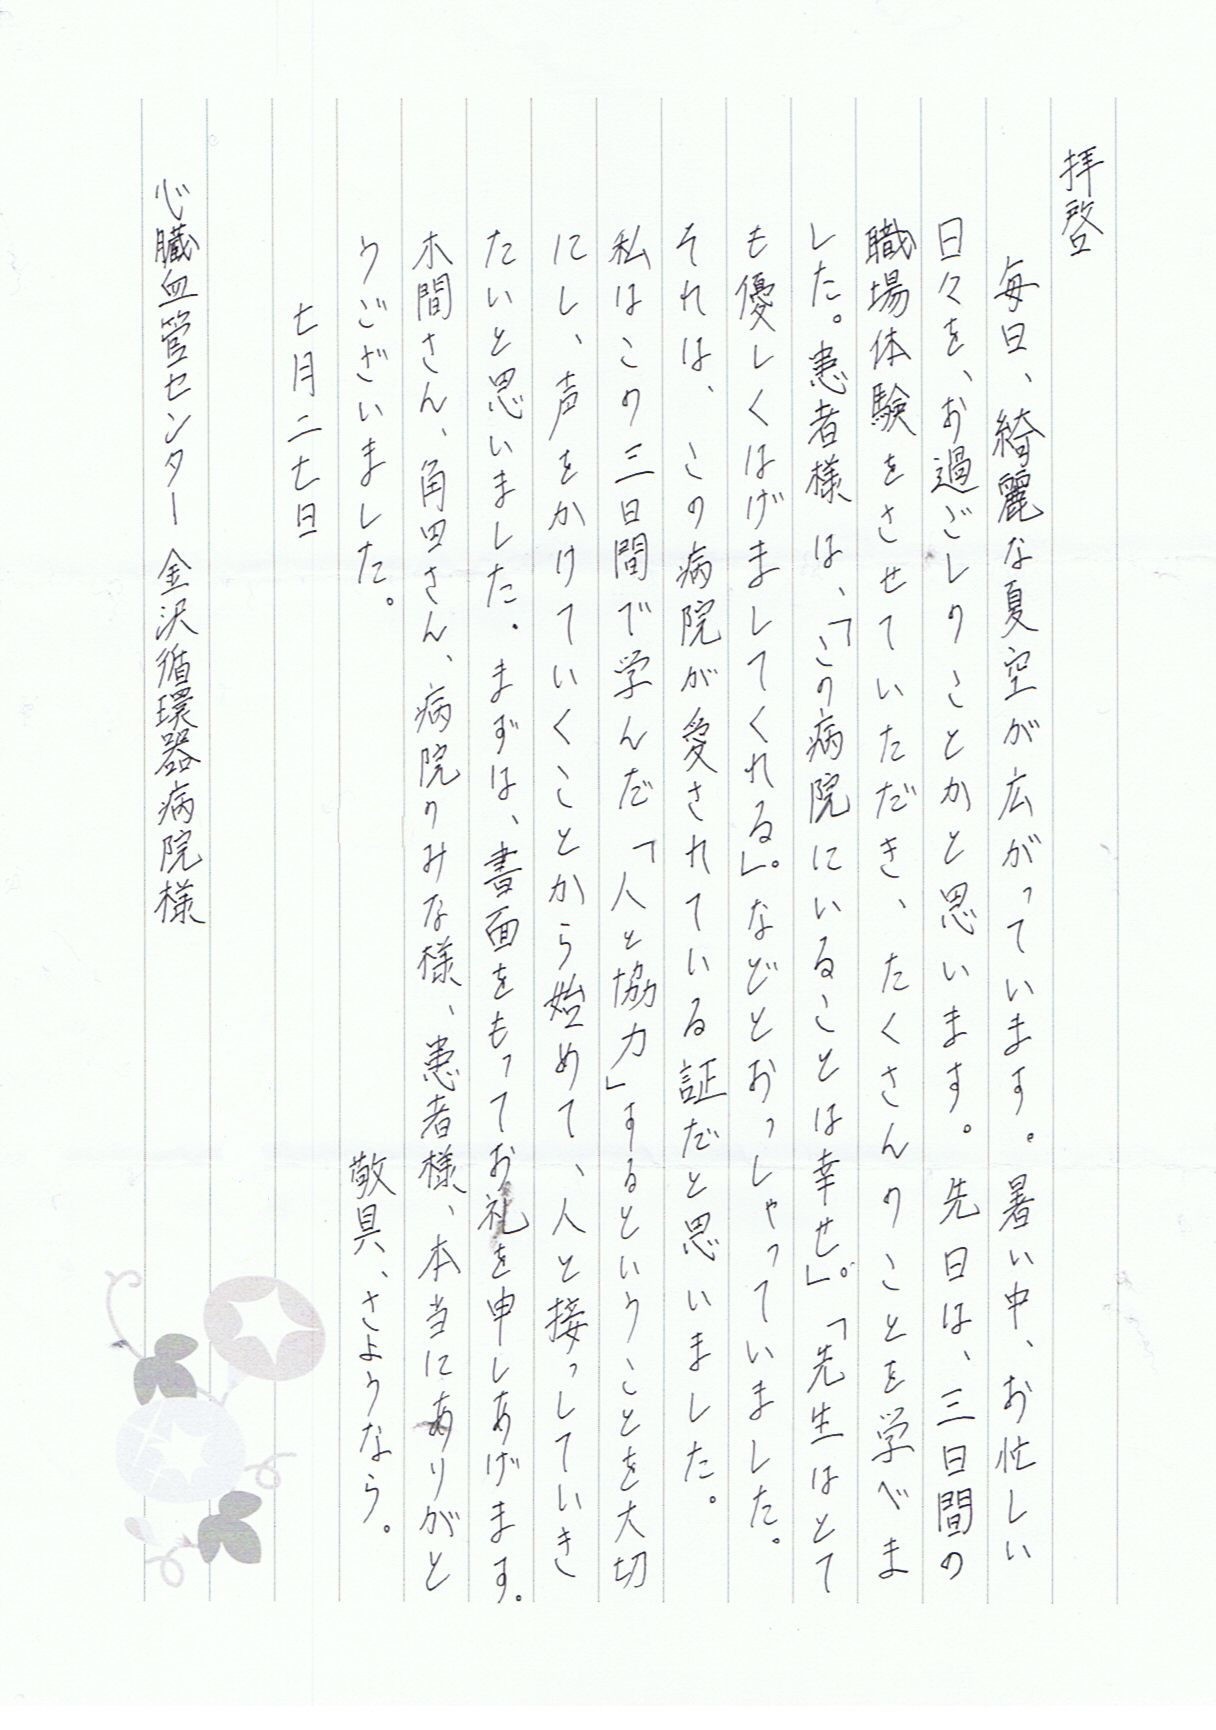 拝啓
毎日、綺麗な夏空が広がっています。暑い中、お忙しい
日々を、お過ごしのことかと思います。先日は、三日間の
職場体験をさせていただき、たくさんのことを学べま
した。患者様は、「この病院にいることは幸せ」。「先生はとて
も優しくはげましてくれる」。などとおっしゃっていました。
それは、この病院が愛されている証だと思いました。
私はこの三日間で学んだ「人と協力」するということを大切
にし、声をかけていくことから始めて、人と接っしていき
たいと思いました。まずは、書面をもってお礼を申しあげます。
木間さん、角田さん、病院のみな様、患者様、本当にありがと
うございました。
敬具、さようなら。
七月二七日
心臓血管センター 金沢循環器病院様